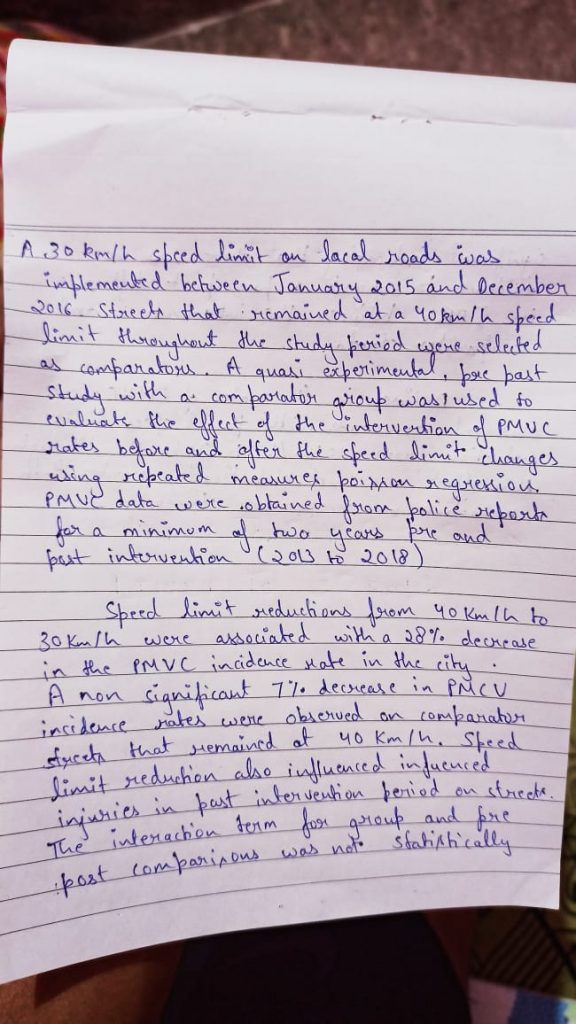 A 30 km/h speed limit on local roads was
implemented between January 2015 and December
2016. Streets that remained at a 40 km/h speed
limit throughout the study period were selected
as comparators. A quasi experimental, pre post
study with a comparator group was used to
evaluate the effect of the intervention of PMVC
rates before and after the speed limit changes
using repeated measures poisson regression.
PMVC data were obtained from police reports
for a minimum of two years pre and
post intervention (2013 to 2018)
Speed limit reductions from 40 km/h to
30 km/h were associated with a 28% decrease
in the PMVC incidence rate in the city.
A non significant 7% decrease in PMCV
incidence rates were observed on comparator
streets that remained at 40 km/h. Speed
limit reduction also influenced infuenced
injuries in post intervention period on streets.
The interaction term for group and pre
post comparisons was not statistically